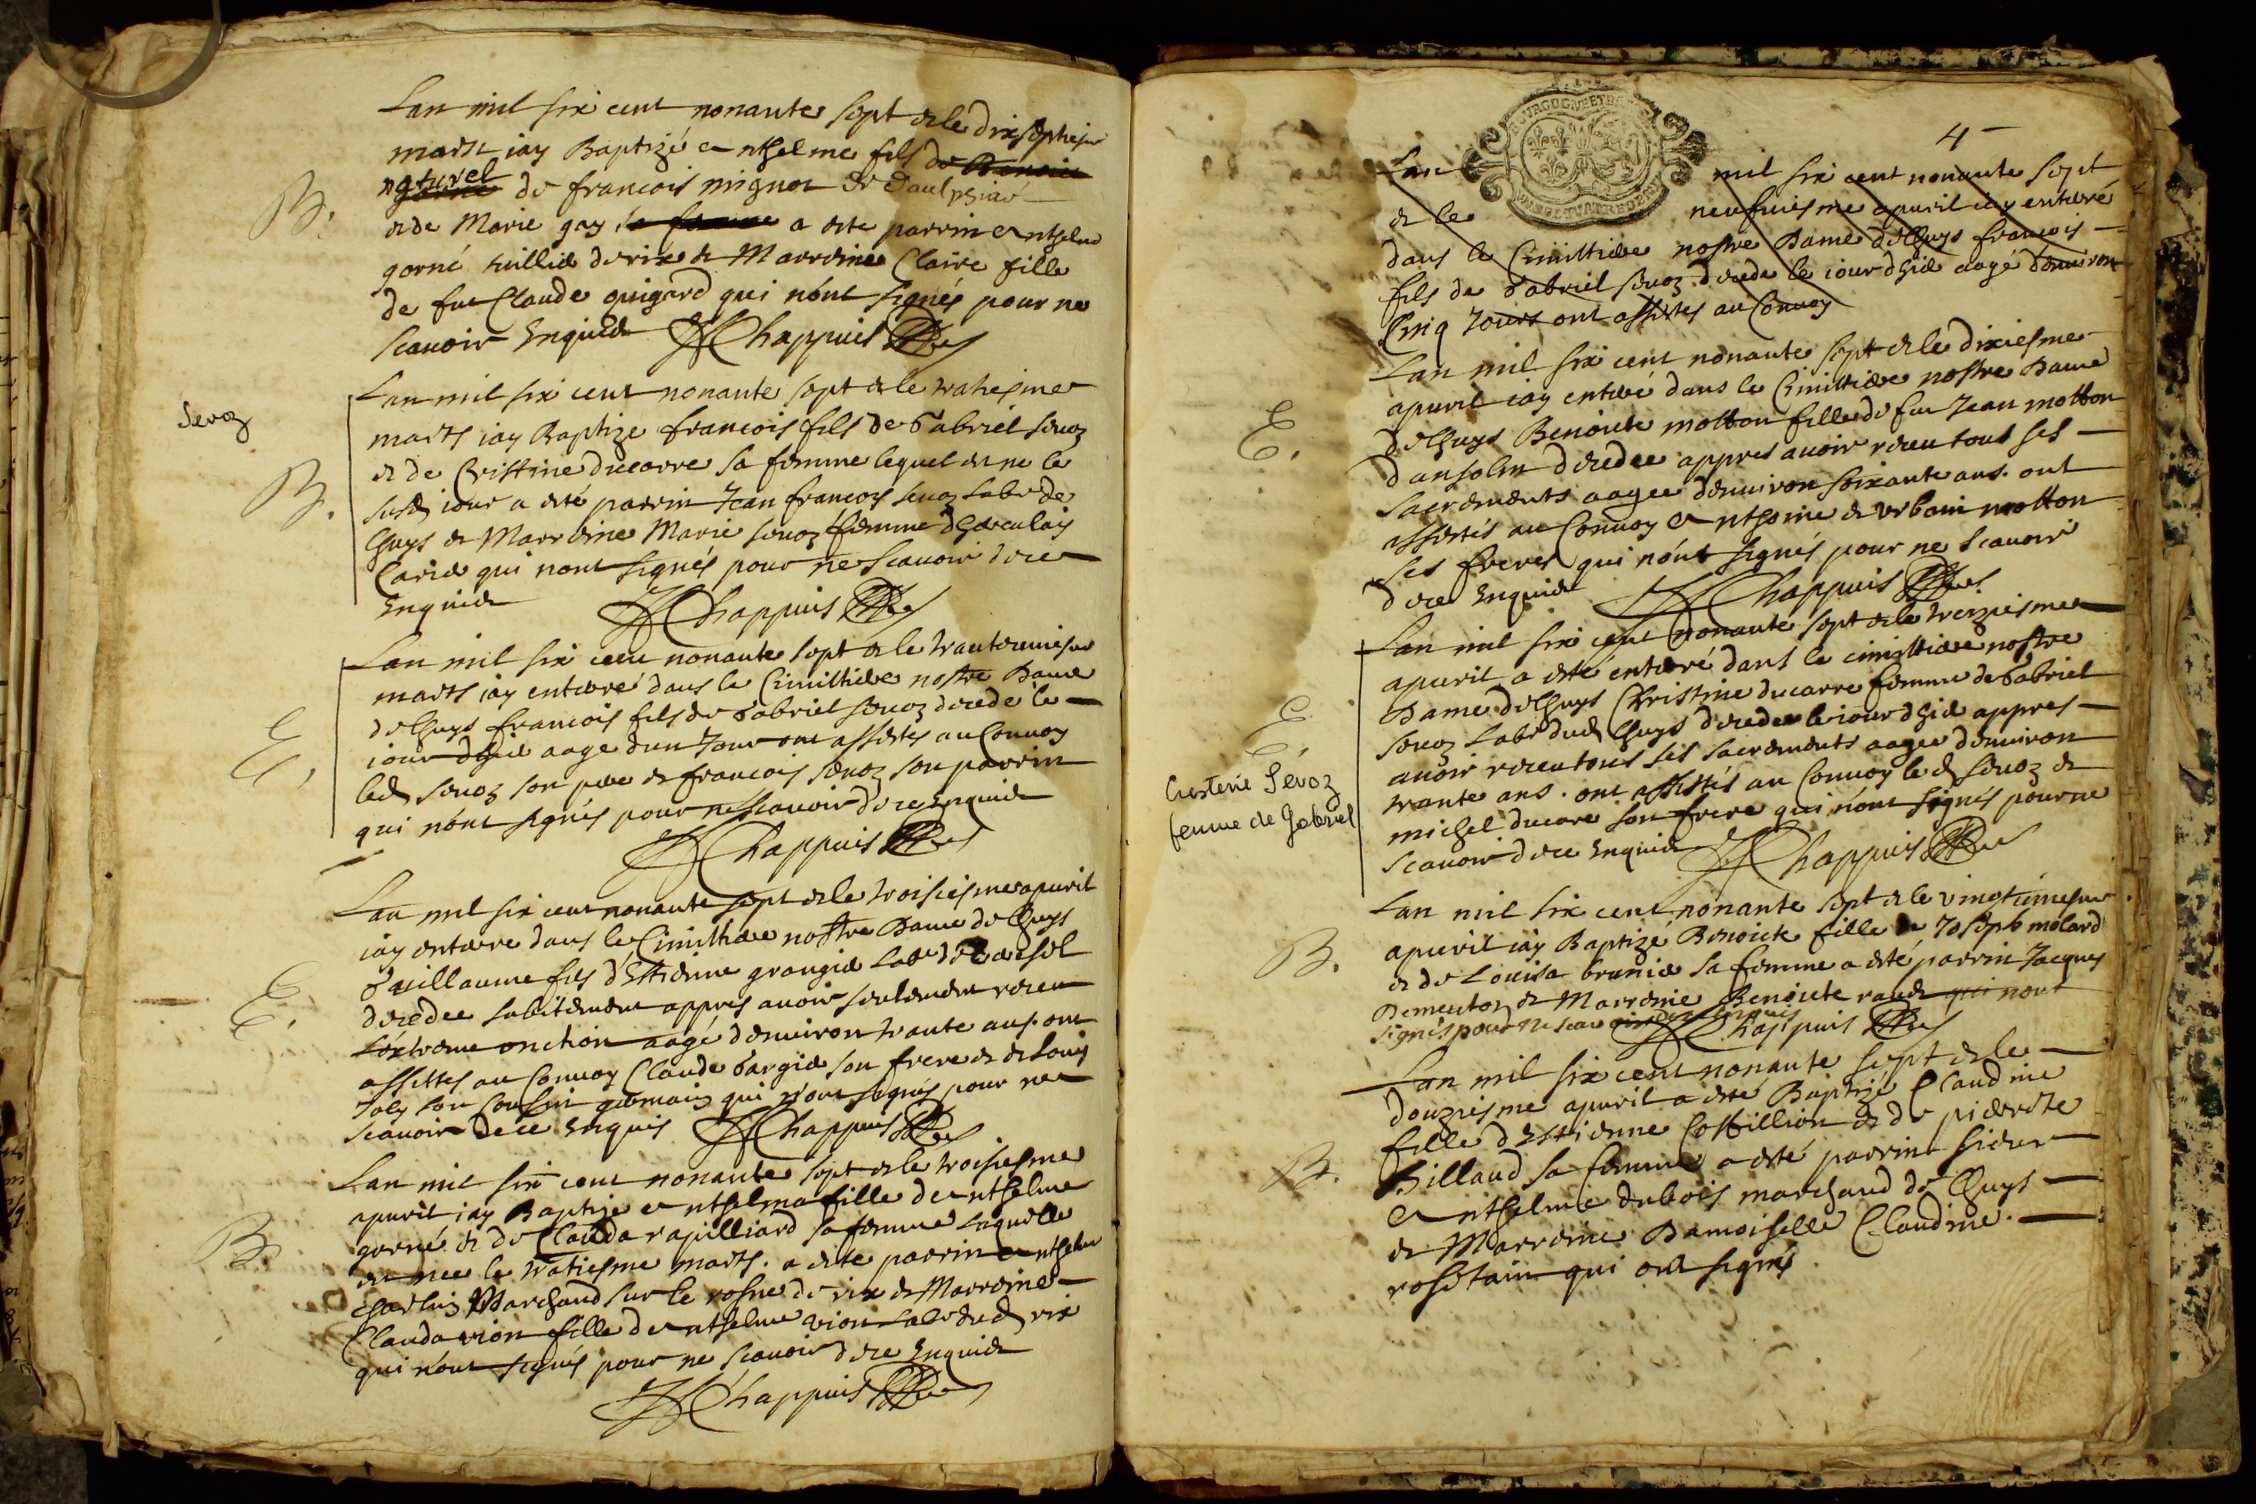 Lan mil six cent nonante sept & le dixseptiesme
mars iay Baptizé Anthelme fils de Benoict
naturel
gorné de francois mignot de
& de Marie gay sa femme a esté parrin Anthelme
B.
gorné tuillier de rix & Marreine Claire fille
de feu Claude guigard qui nont signés pour ne
scauoir Enquis Chappuis
Lan mil six cent nonante sept & le
Sevoz
mars iay Baptize francois fils de Gabriel seuoz
& de Cristine ducarre sa femme lequel est ne le
B.
susd iour a esté parrin Jean francois seuoz Labr de
Lhuys & Marreine Marie seuoz femme
qui nont signés pour ne scauoir de ce
Enquis Chappuis
Lan mil six cent nonante sept & le
mars iay enterré dans le Cimittiere nostre Dame
de Lhuys francois fils de Gabriel seuoz decede le
E.
iour dhier aage dun Jour ont assistes au Conuoy
led seuoz son pere & francois seuoz son parrin
qui nont signés pour ne scauoir de ce Enquis
Chappuis
Lan mil six cent nonante sept & le troisiesme apuril
iay enterre dans le Cimittiere nostre Dame de Lhuys
Guillaume fils d'Estienne grangier Labr
E.
decedee subitement appres auoir seulement receu
Lextreme onction aagé denuiron trante ans. ont
assistes au Conuoy Claude son frere & & Louis
Joly son Cousin germain qui nont signés pour ne
scauoir de ce Enquis Chappuis
Lan mil six cent nonante sept & le troisiesme
apuril iay Baptize Anthelma fille de Anthelme
gorné & de Clauda rapilliard sa femme Laquelle
B.
est nee le mars. a este parrin Anthelme
Marchand sur le rosne de rix & Marreine
Clauda vion fille de Anthelme vion Labr dud rix
qui nont signés pour ne scauoir de ce Enquis
Chappuis
4
Lan mil six cent nonante sept
& le neufuiesme apuril iay enterré
dans le Cimittiere nostre Dame de Lhuys francois
fils de Gabriel seuoz decede le iour dhier aagé denuiron
Cinq Jours ont assistes au Conuoy
Lan mil six cent nonante sept & le dixiesme
apuril iay enterré dans le Cimittiere nostre Dame
E.
de Lhuys Benoicte motton fille de feu Jean motton
dansolin decedee appres auoir receu tous ses
sacrements aagee denuiron soixante ans. ont
assistés au Conuoy Anthoine & vrbain motton
ses freres qui nont signés pour ne scauoir
de ce Enquis Chappuis
Lan mil six cent nonante sept & le treizziesme
apuril a esté enterré dans le cimittiere nostre
Dame de Lhuys Christine ducarre femme de Gabriel
E.
seuoz Labr dud Lhuys decedee le iour dhier appres
auoir receu tous ses sacrements aagee denuiron
Cristerie Sevoz
trante ans. ont assistés au Conuoy led seuoz &
femme de Gabriel
michel ducare son frere qui nont signés pour ne
scauoir de ce Enquis Chappuis
Lan mil six cent nonante sept & le
apuril iay Baptizé Benoicte fille de Joseph molard
B.
& de Louisa brunier sa femme a esté parrin Jacques
Dementoz & Marreine Benoicte qui nont
signés pour ne scauoir de ce Enquis Chappuis
Lan mil six cent nonante sept & le
douzziesme apuril a esté Baptizé Claudine
fille d'Estienne Costillion & de pierrette
B.
Billaud sa femme a esté parrin sieur
Anthelme dubois marchand de Lhuys
& Marreine Damoiselle Claudine
rosétain qui ont signés